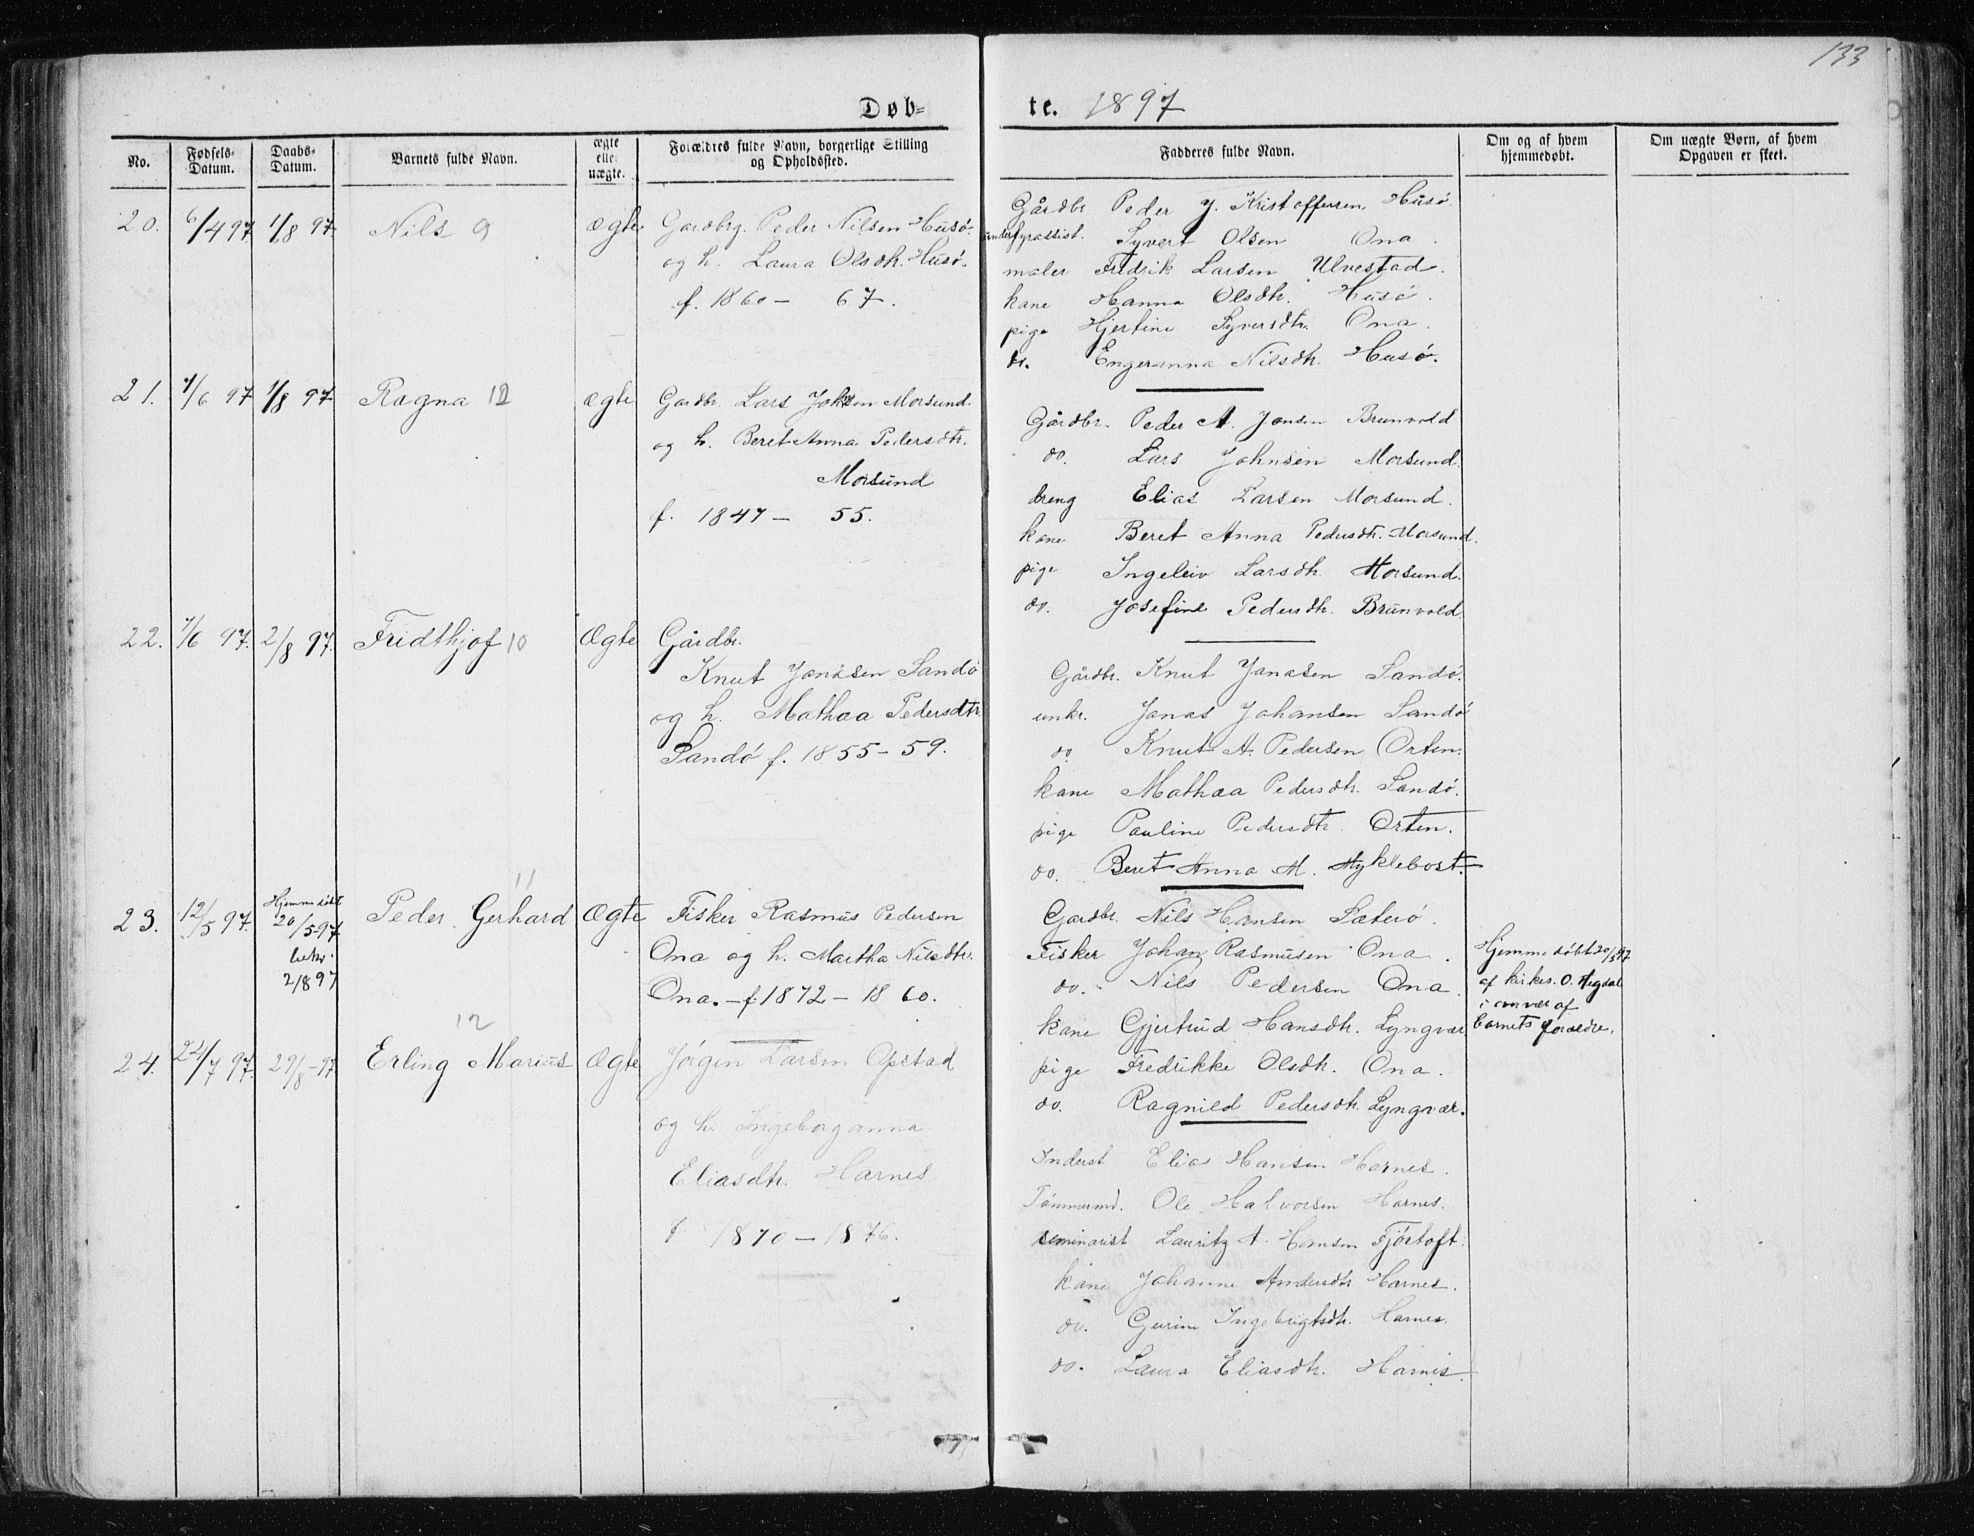 133
Døb-
te. 1897
No.
Fødsels-
Datum.
Daabs-
Datum.
Barnets fulde Navn.
ægte
eller
uægte.
Forældres fulde Navn, borgerlige Stilling
og Opholdssted.
Fadderes fulde Navn.
Om og af hvem
hjemmedøbt.
Om uægte Børn, af hvem
Opgaven er skeet.
20. 6/4 97 1/8 97 Nils 9 ægte
Gardbrg. Peder Nilsen Husø
og h. Laura Olsdtr. Husø.
f. 1860 - 67.
Gårdbr Peder J. Kristoffersen Husø.
underfyrassist. Syvert Olsen Ona.
maler Fredrik Larsen Ulvestad.
kane Hanna Olsdtr. Husø.
pige Hjertine Syversdtr. Ona.
do. Engeranna Nilsdtr. Husø.
21. 7/6 97 1/8 97 Ragna 12 ægte
Gardbr. Lars Johsen Morsund.
og h. Beret Anna Pedersdtr.
Morsund
f. 1847 - 55.
Gårdbr. Peder A. Jonsen Brunvold
do. Lars Johnsen Morsund.
dreng Elias Larsen Morsund.
kane Beret Anna Pedersdtr. Morsund.
pige Ingeleiv Larsdtr Morsund.
do. Josefine Pedersdtr. Brunvold
22. 7/6 97. 2/8 97. Fridthjof 10 Ægte
Gårdbr.
Knut Jonasen Sandø
og h. Mathea Pedersdtr
Sandø f. 1855-59.
Gårdbr. Knut Jonasen Sandø.
unkr. Jonas Johansen Sandø
do. Knut A. Pedersen Orten.
kane Mathea Pedersdtr. Sandø.
pige Pauline Pedersdtr. Orten.
do. Beret Anna M. Myklebost.
11
23. 12/5 97. Hjemmedøbt
20/5-97
bekr.
2/8 97
Peder Gerhard Ægte
Fisker Rasmus Pedersen
Ona og h. Martha Nilsdtr.
Ona. - f. 1872 - 1860.
Gardbr. Nils Hansen Sæterø.
Fisker Johan Rasmusen Ona.
do. Nils Pedersen Ona.
kane Gjertrud Hansdtr. Lyngvær
pige Fredrikke Olsdtr. Ona.
do. Ragnild Pedersdtr. Lyngvær.
Hjemmedøbt 20/5 97
af kirkes. O. Hegdal
i onvær af
barnets forældre.
12
24. 22/7 97. 29/8-97 Erling Marius Ægte
Jørgen Larsen Opstad
og h. Ingeborganna
Eliasdtr. Harnes
f 1870 - 1876.
Inderst Elias Hansen Harnes.
Tømmermd. Ole Halvorsen Harnes.
seminarist Lauritz A. Hansen Fjørtoft.
kane Johanne Andersdtr Harnes.
do. Gurine Ingebrigtsdtr. Harnes.
do. Laura Eliasdtr. Harnes.